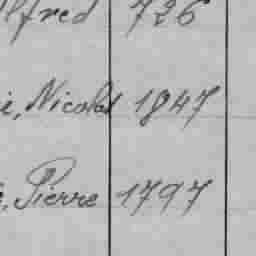 lfred 726
i, Nicolas 1847
, Pierre 1797